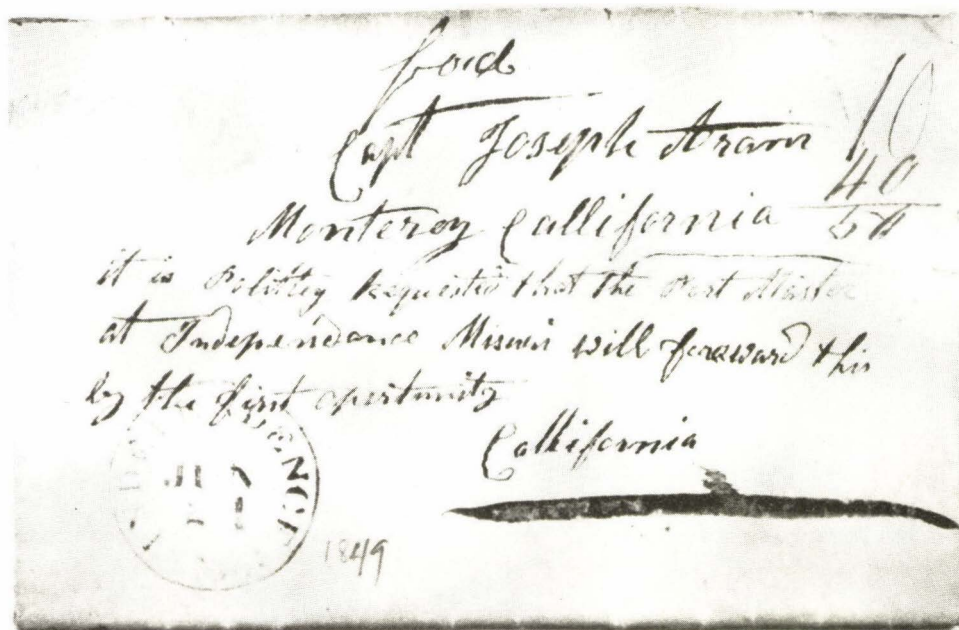 Capt Joseph Aram 10
Monterey Callifornia 40
it is Politley Requested that the Post Master
at Independance Missuri will foreward this
by the first opertunity
Callifornia
1849